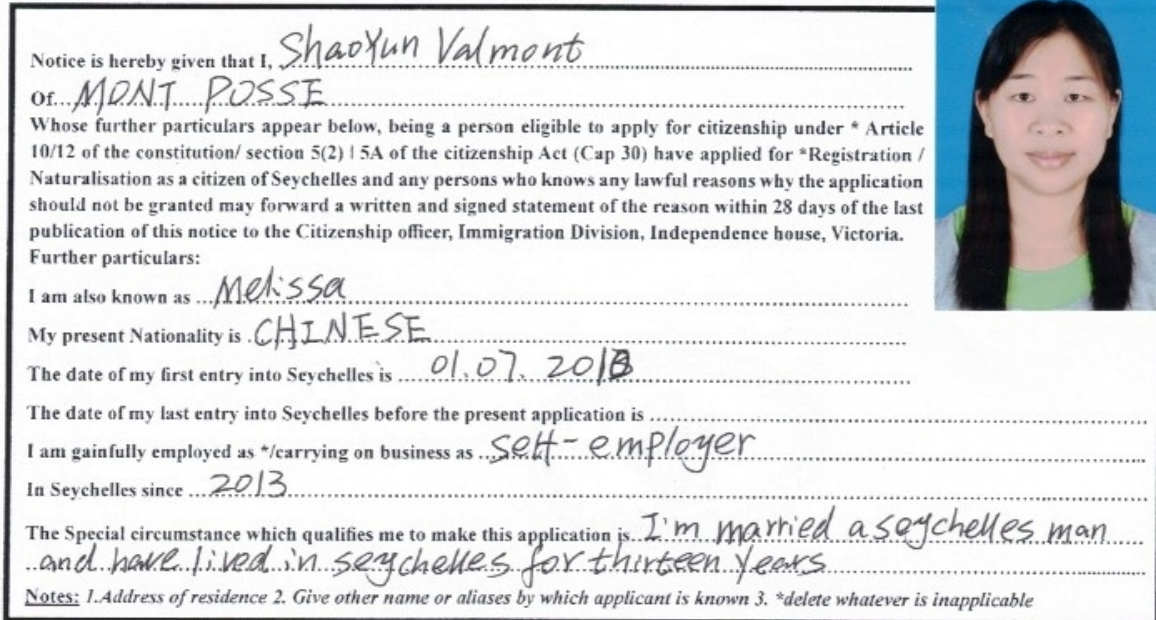 Notice is hereby given that I, ShaoYun Valmont
Of MONT POSSE
Whose further particulars appear below, being a person eligible to apply for citizenship under * Article
10/12 of the constitution/ section 5(2) | 5A of the citizenship Act (Cap 30) have applied for *Registration /
Naturalisation as a citizen of Seychelles and any persons who knows any lawful reasons why the application
should not be granted may forward a written and signed statement of the reason within 28 days of the last
publication of this notice to the Citizenship officer, Immigration Division, Independence house, Victoria.
Further particulars:
I am also known as Melissa
My present Nationality is CHINESE
The date of my first entry into Seychelles is 01.07.
The date of my last entry into Seychelles before the present application is
I am gainfully employed as */carrying on business as self-employer
In Seychelles since 2013
The Special circumstance which qualifies me to make this application is I'm married a seychelles man
and have lived in seychelles for thirteen years
Notes: 1.Address of residence 2. Give other name or aliases by which applicant is known 3. *delete whatever is inapplicable